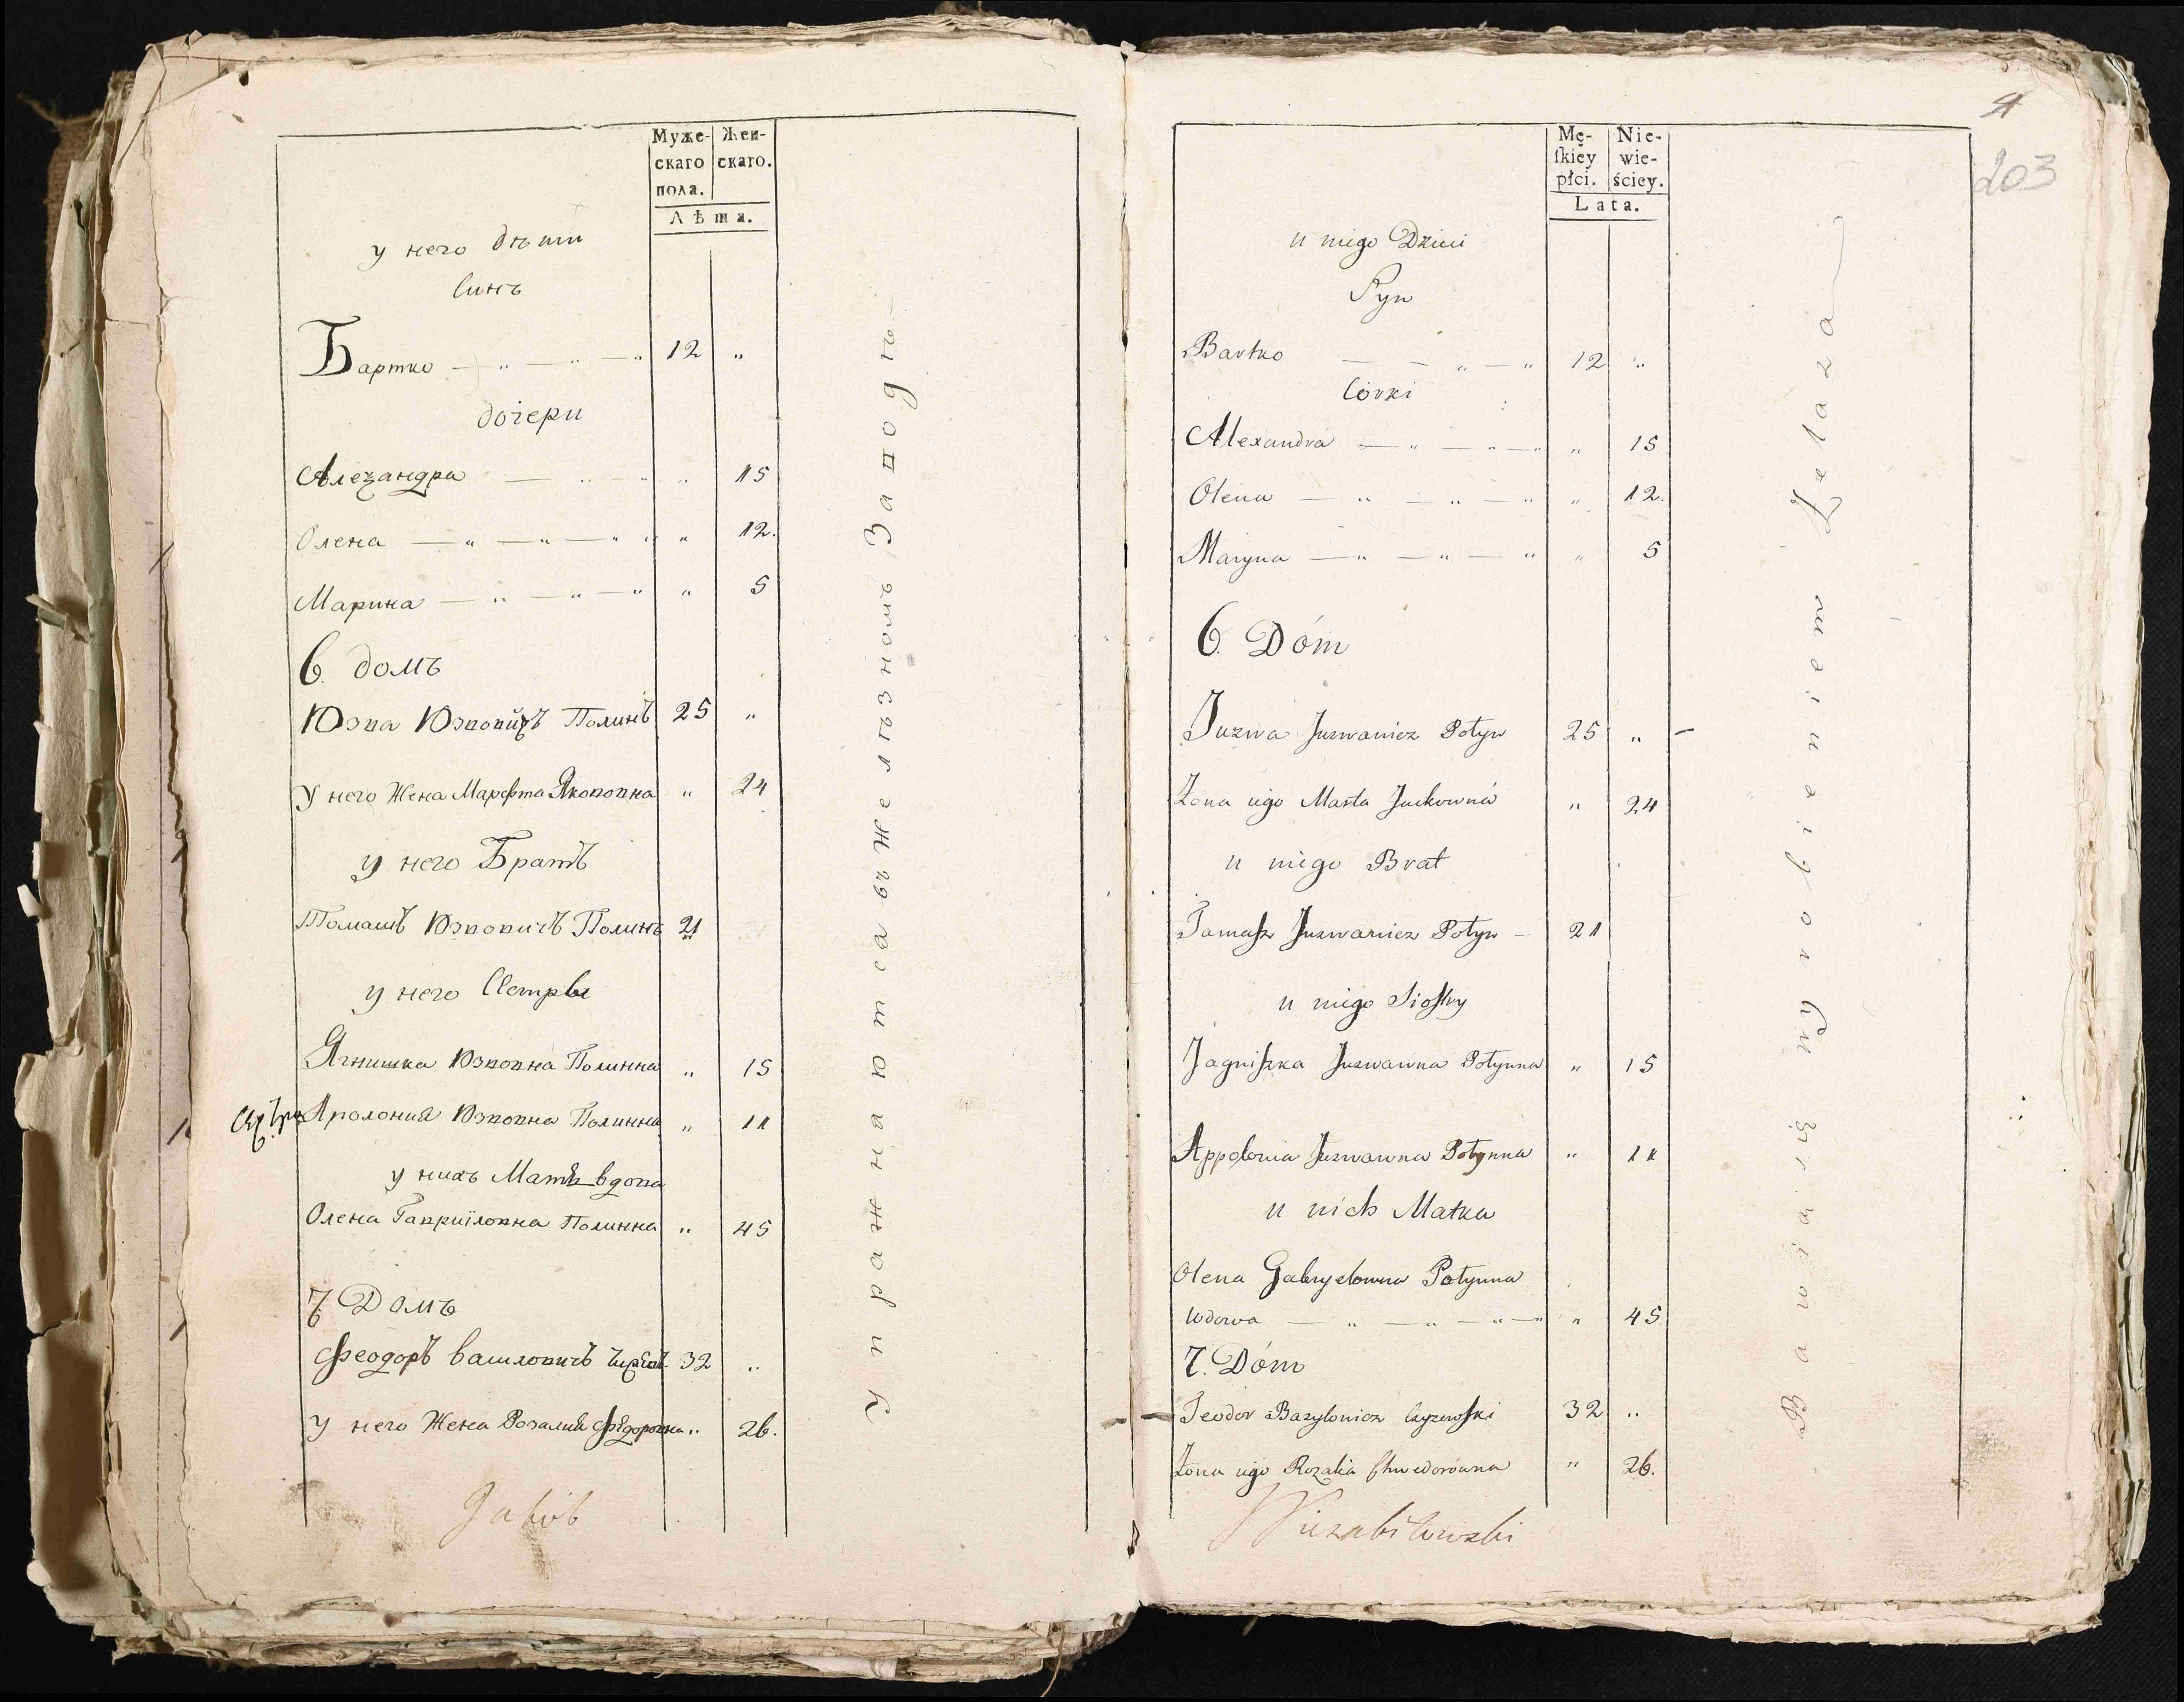 Муже-
скаго
пола.
Жен-
скаго.
Лѣта.
у него дѣти
Синъ
Бартко — „ — „ — „ 12 „
дочери
Алезандра — „ — „ „ 15
Олена — „ — „ — „ „ „ 12.
Марина — „ — „ — „ „ 5
6. домъ
Юзва Юзвовичъ Полинъ 25 „
У него Жена Марфта Якововна „ 24
у него Братъ
Томашъ Юзвовичъ Полинъ 21
у него Сестры
Ягнишка Юзвовна Полинна „ 15
Аполонія Юзвовна Полинна „ 11
у нихъ Мать вдова
Олена Гавриіловна Полинна „ 45
7. Домъ
Феодоръ Вашловичъ 32 „
У него Жена Розалия Фѣдоровна „ 26.
Jakób
Упражнаютса въ желѣзномъ Заподѣ
4
203
Mę-
skiey
płci.
Nie-
wie-
ściey.
Lata.
u niego Dzieci
Syn
Bartko — — „ — „ 12 „
Córki
Alexandra — „ — „ — „ „ 15
Olena — „ — „ — „ „ 12.
Maryna — „ — „ — „ „ 5
6. Dóm
Juzwa Juzwawicz Połyn 25 „ –
Żona iego Marta Jackowna „ 24
u niego Brat
Tamasz Juzwawicz Połyn – 21
u niego Siostry
Jagniszka Juzwawna Połynna „ 15
Appolonia Juzwawna Połynna „ 11
u nich Matka
Olena Gabryelowna Połynna
Wdowa — „ — „ — „ — „ „ 45
7. Dóm
Teodor Bazylowicz Czyzewski 32 „
Żona iego Rozalia Chwedorówna „ 26.
Niezabitowski
Bawią się wyrobieniem Żelaza